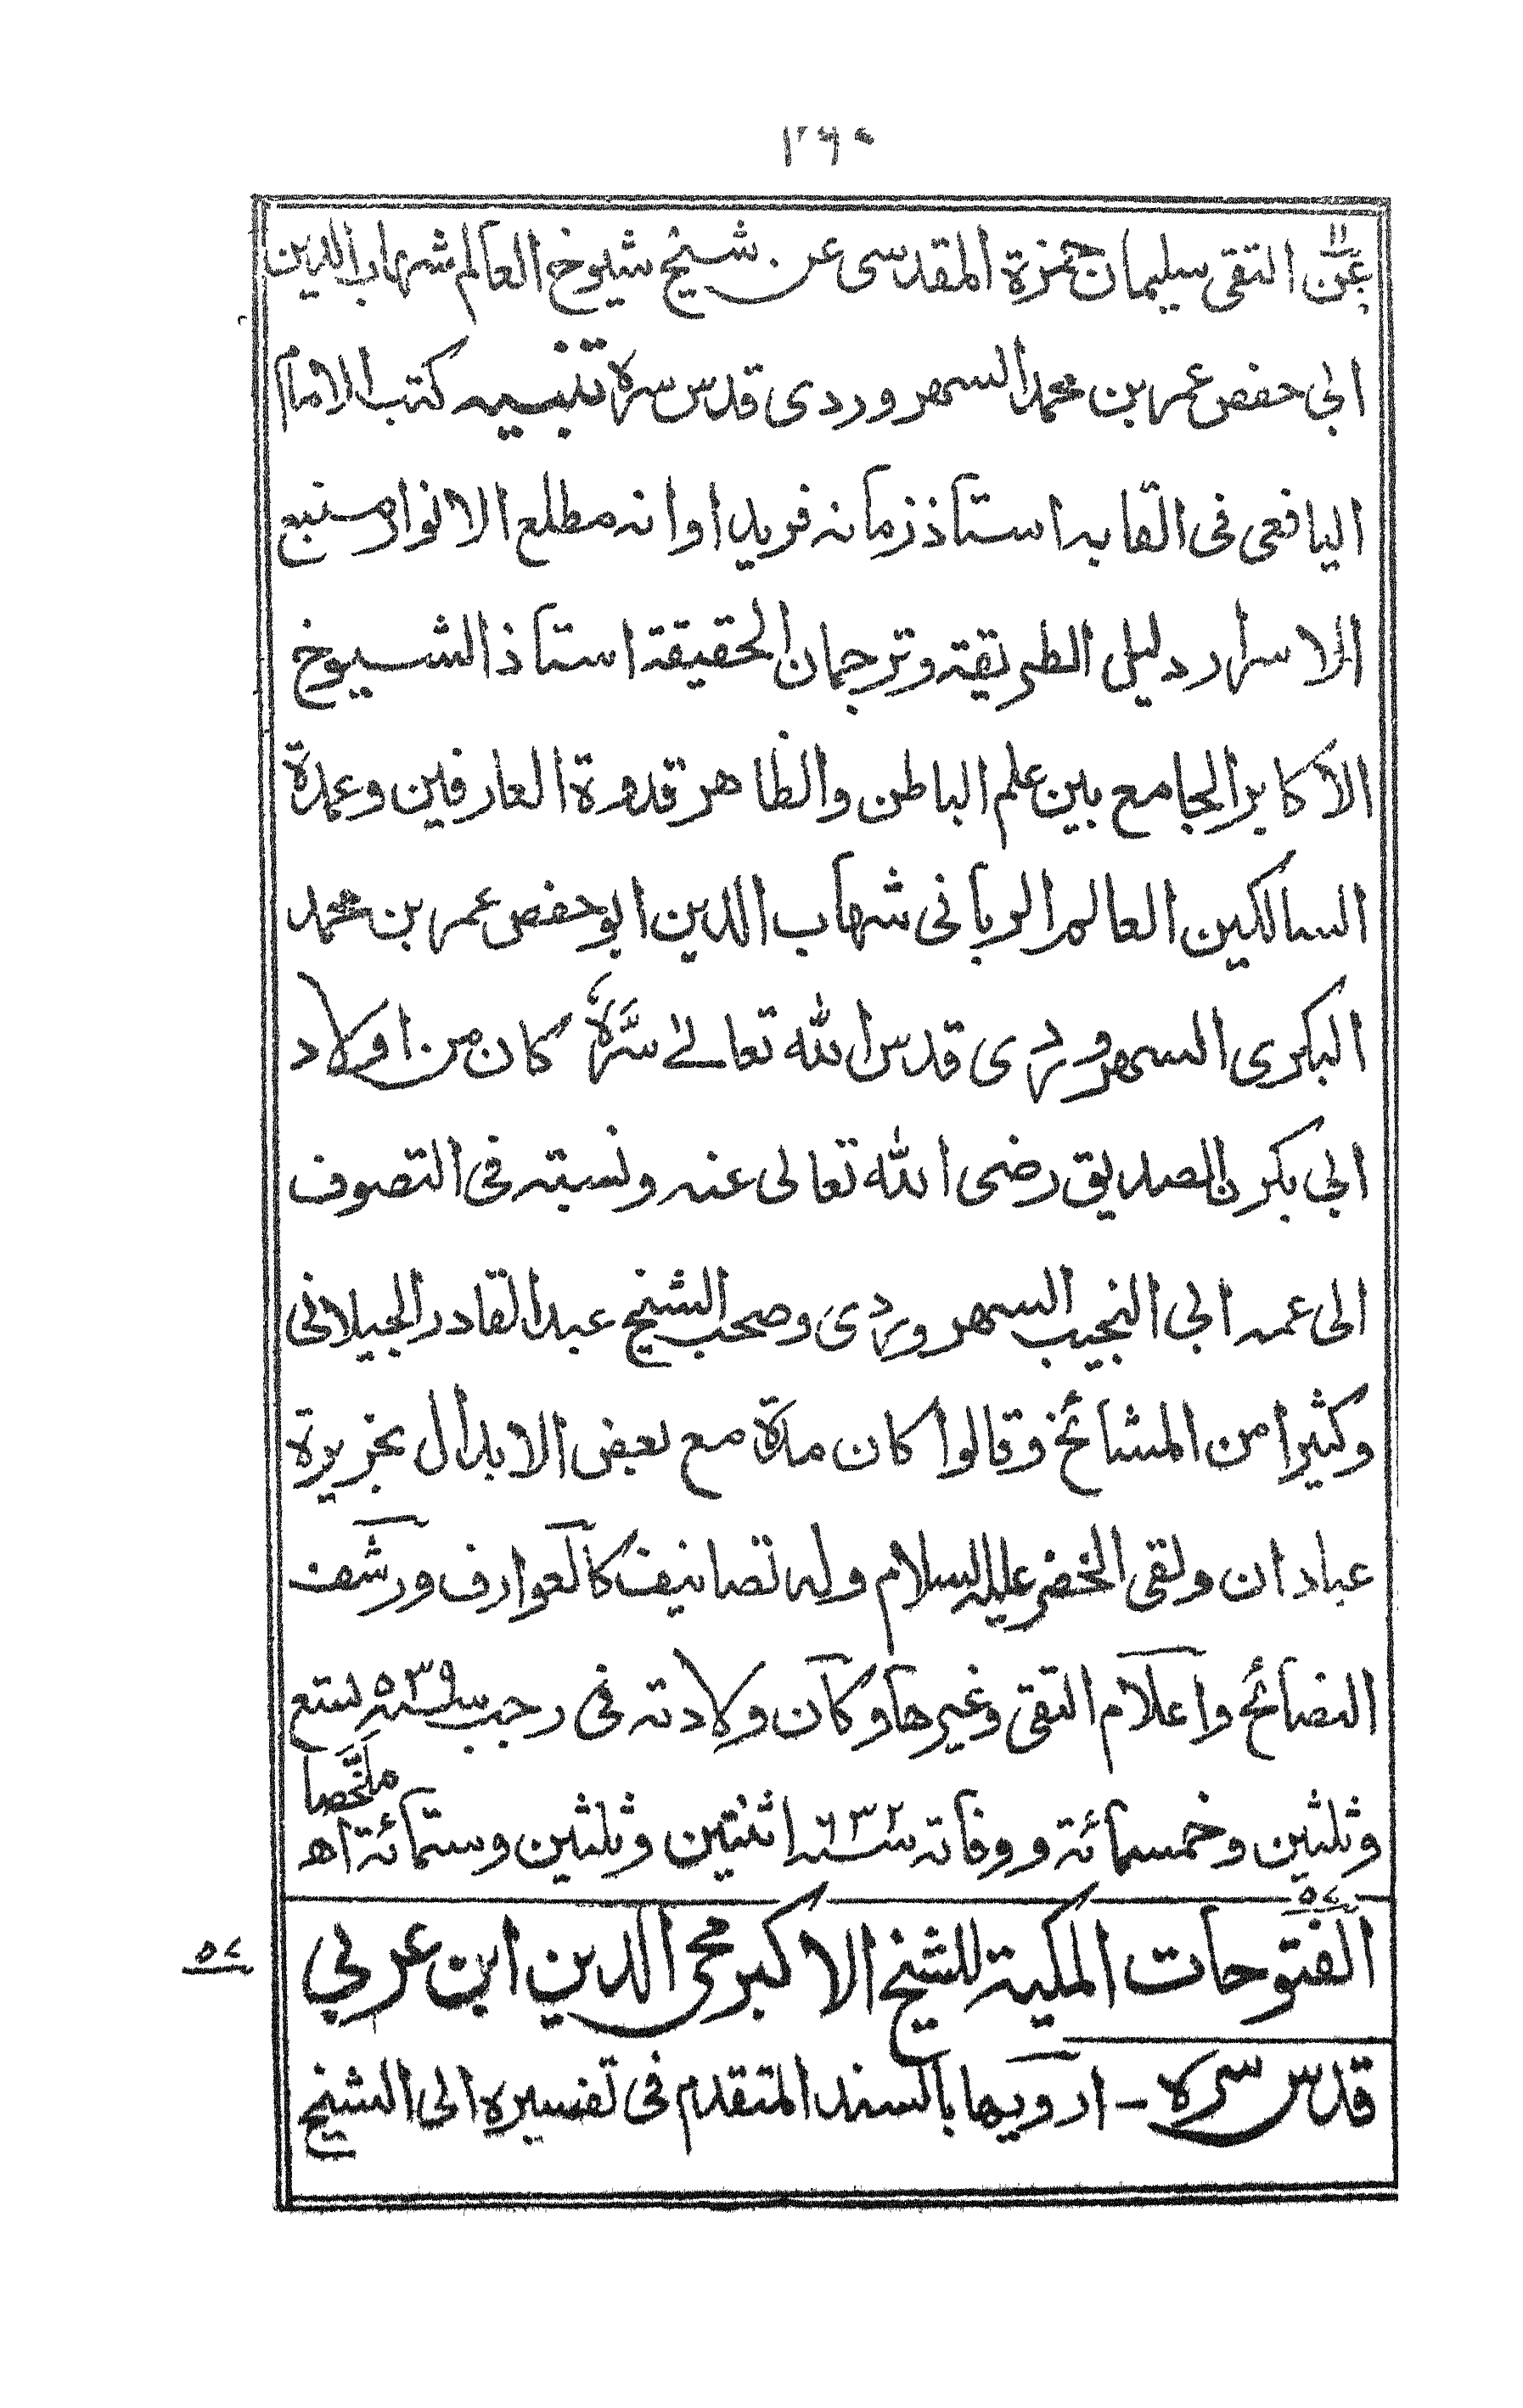 ٢٦٠
عن التقى سليمان حمزة المقدسى عن شيخ شيوخ العالم شهاب الدين
ابي حفص عمر بن محمد السهروردى قدس سره تنبيه كتب الامام
اليافعى فى القابه استاذ زمانه فريد اوانه مطلع الانوار منبع
الاسرار دليل الطريقة وترجمان الحقيقة استاذ الشيوخ
الاكابر الجامع بين علم الباطن والظاهر قدوة العارفين وعمدة
السالكين العالم الربانى شهاب الدين ابو حفص عمر بن محمد
البكرى السهروردى قدس الله تعالىٰ سرَّهٗ كان من اولاد
ابي بكرن الصديق رضى الله تعالى عنه ونسبته فى التصوف
الى عمه ابي النجيب السهروردى وصحب الشيخ عبد القادر الجيلانى
وكثيرا من المشائخ وقالوا كان مدة مع بعض الابدال بجزيرة
عبادان ولقى الخضر عليه السلام وله تصانيف كالعوارف ورشف
النصائح واعلام التقى وغيرها وكان ولادته فى رجب سنه ٥٣٩ تسع
وثلثين وخمسمائة ووفاته سنه ٦٣٢ اثنتين وثلثين وستمائة اه ملخصا
٥٢ الفتوحات المكية للشيخ الاكبر محى الدين ابن عربي ٥٢
قدس سره - ارويها بالسند المتقدم فى تفسيره الى الشيخ